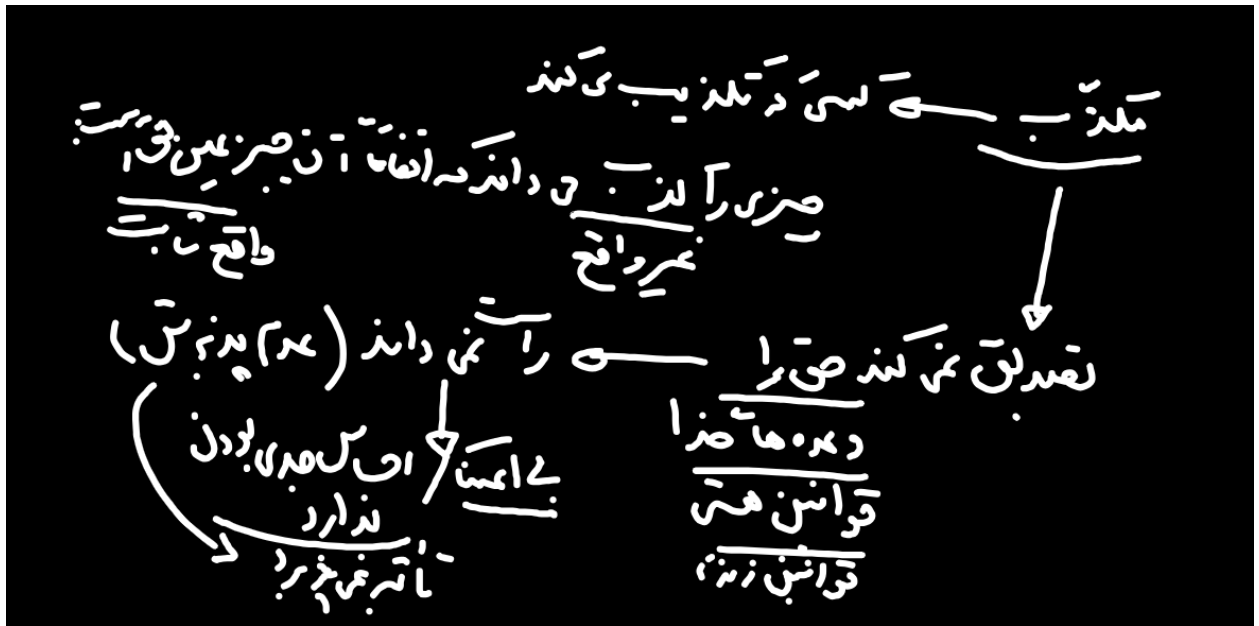 مکذّب
کسی که تکذیب می کند
چیزی را کذب می داند که اتفاقاً آن چیز عین حق است
غیر واقع
واقعیت
تصدیق نمی کند حق را
راست نمی داند (عدم پذیرش)
وعده های خدا
قوانین هستی
قوانین زندگی
بی اعتنا
احساس جدی بودن
ندارد
تأثیر نمی پذیرد